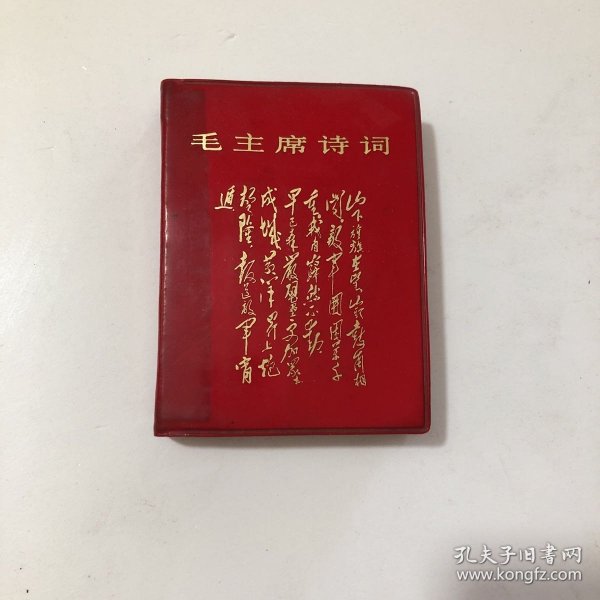 毛主席诗词
山下旌旗在望山头鼓角相
闻敌军围困万千
重我自岿然不动
早已森严壁垒更加众志
成城黄洋界上炮
声隆报道敌军宵
遁
孔夫子旧书网
www.kongfz.com